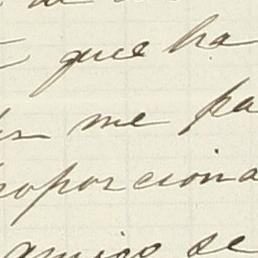 que ha
me pa
roporciona
amigo se